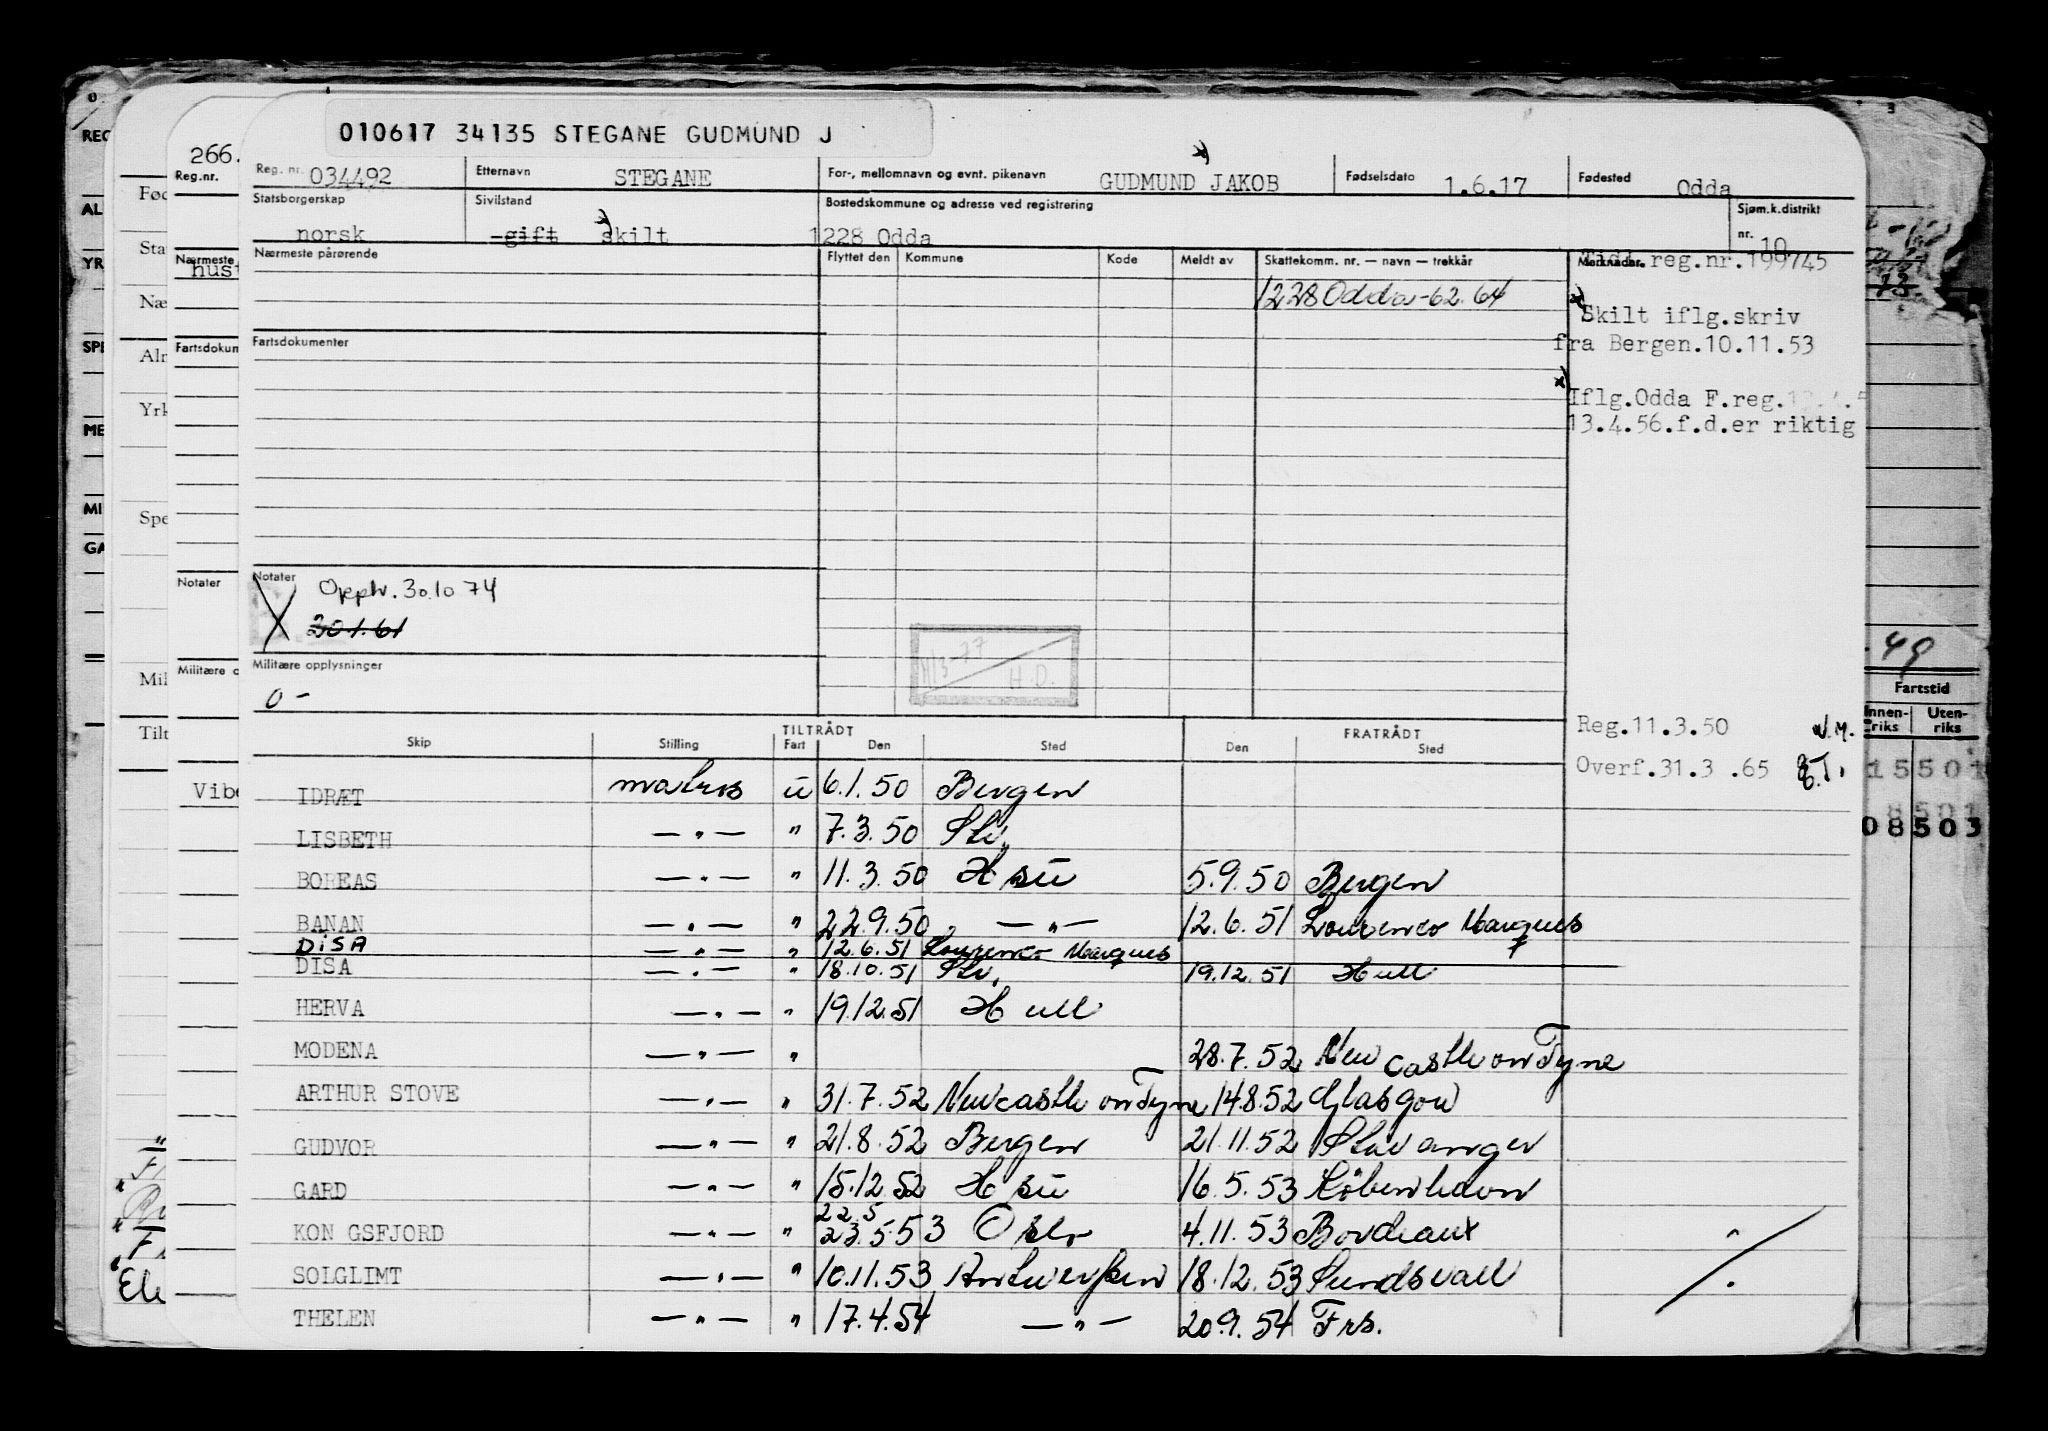 010617 34135 STEGANE GUDMUND J
266.
Reg. nr. 034492 Etternavn STEGANE For-, mellomnavn og evnt. pikenavn GUDMUND JAKOB x) Fødselsdato 1.6.17 Fødested Odda
Statsborgerskap norsk Sivilstand -gift x) skilt Bostedskommune og adresse ved registrering 1228 Odda Sjøm.k.distrikt nr. 10
Nærmeste pårørende Flyttet den Kommune Kode Meldt av Skattekomm. nr. — navn — trekkår Merknader. Tidl.reg.nr.199745
1228 Odda -62. 64
x) Skilt iflg.skriv
fra Bergen.10.11.53
Fartsdokumenter
x) Iflg.Odda F.reg.
13.4.56.f.d.er riktig
Notater Opphr. 30.10 74
X 20.1.61
H/3-77 H.D.
Militære opplysninger
0 -
Reg.11.3.50
Overf.31.3 .65
TILTRÅDT FRATRÅDT
Skip Stilling Fart Den Sted Den Sted
IDRÆT matros u 6.1.50 Bergen
LISBETH — " — " 7.3.50 Stv.
BOREAS — " — " 11.3.50 H su 5.9.50 Bergen
BANAN — " — " 22.9.50 — " — 12.6.51 Lourenco Marques
DISA — " — " 12.6.51 Lourenco Marques
DISA — " — " 18.10.51 Stv. 19.12.51 Hull
HERVA — " — " 19.12.51 Hull
MODENA — " — " 28.7.52 New castle on Tyne
ARTHUR STOVE — " — " 31.7.52 Newcastle on Tyne 14.8.52 Glasgow
GUDVOR — " — " 21.8.52 Bergen 21.11.52 Stavanger
GARD — " — " 15.12.52 H su 16.5.53 København
22.5
KON GSFJORD — " — " 23.5.53 Oslo 4.11.53 Bordeaux
SOLGLIMT — " — " 10.11.53 Antwerpen 18.12.53 Sundsvall
THELEN — " — " 17.4.54 — " — 20.9.54 Frs.
Reg.nr.
Nærmeste
Fartsdokum
Notater
Militære o
Vibe
49
Fartstid
Innenriks Utenriks
15501
08503